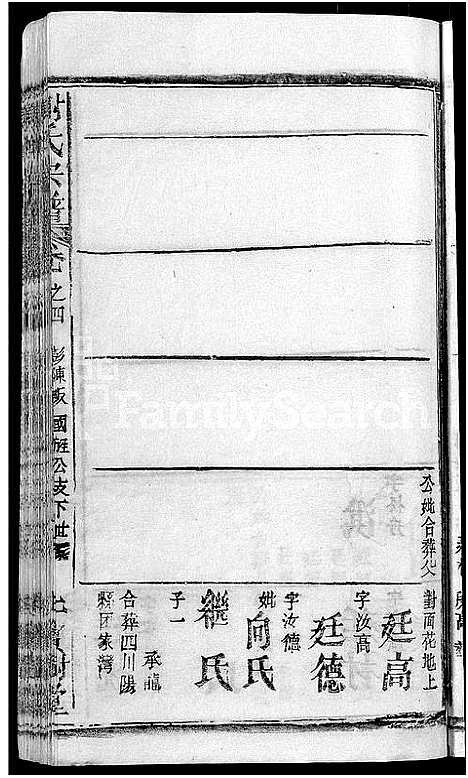 公妣合葬父
對面花地上
廷高
字汝高
廷德
字汝德
妣向氏
繼氏
子一
承龍
合葬四川陽
縣团家灣
氏宗譜
之四
彭陳畈國旺公支下世系
寶樹堂
FamilySearch